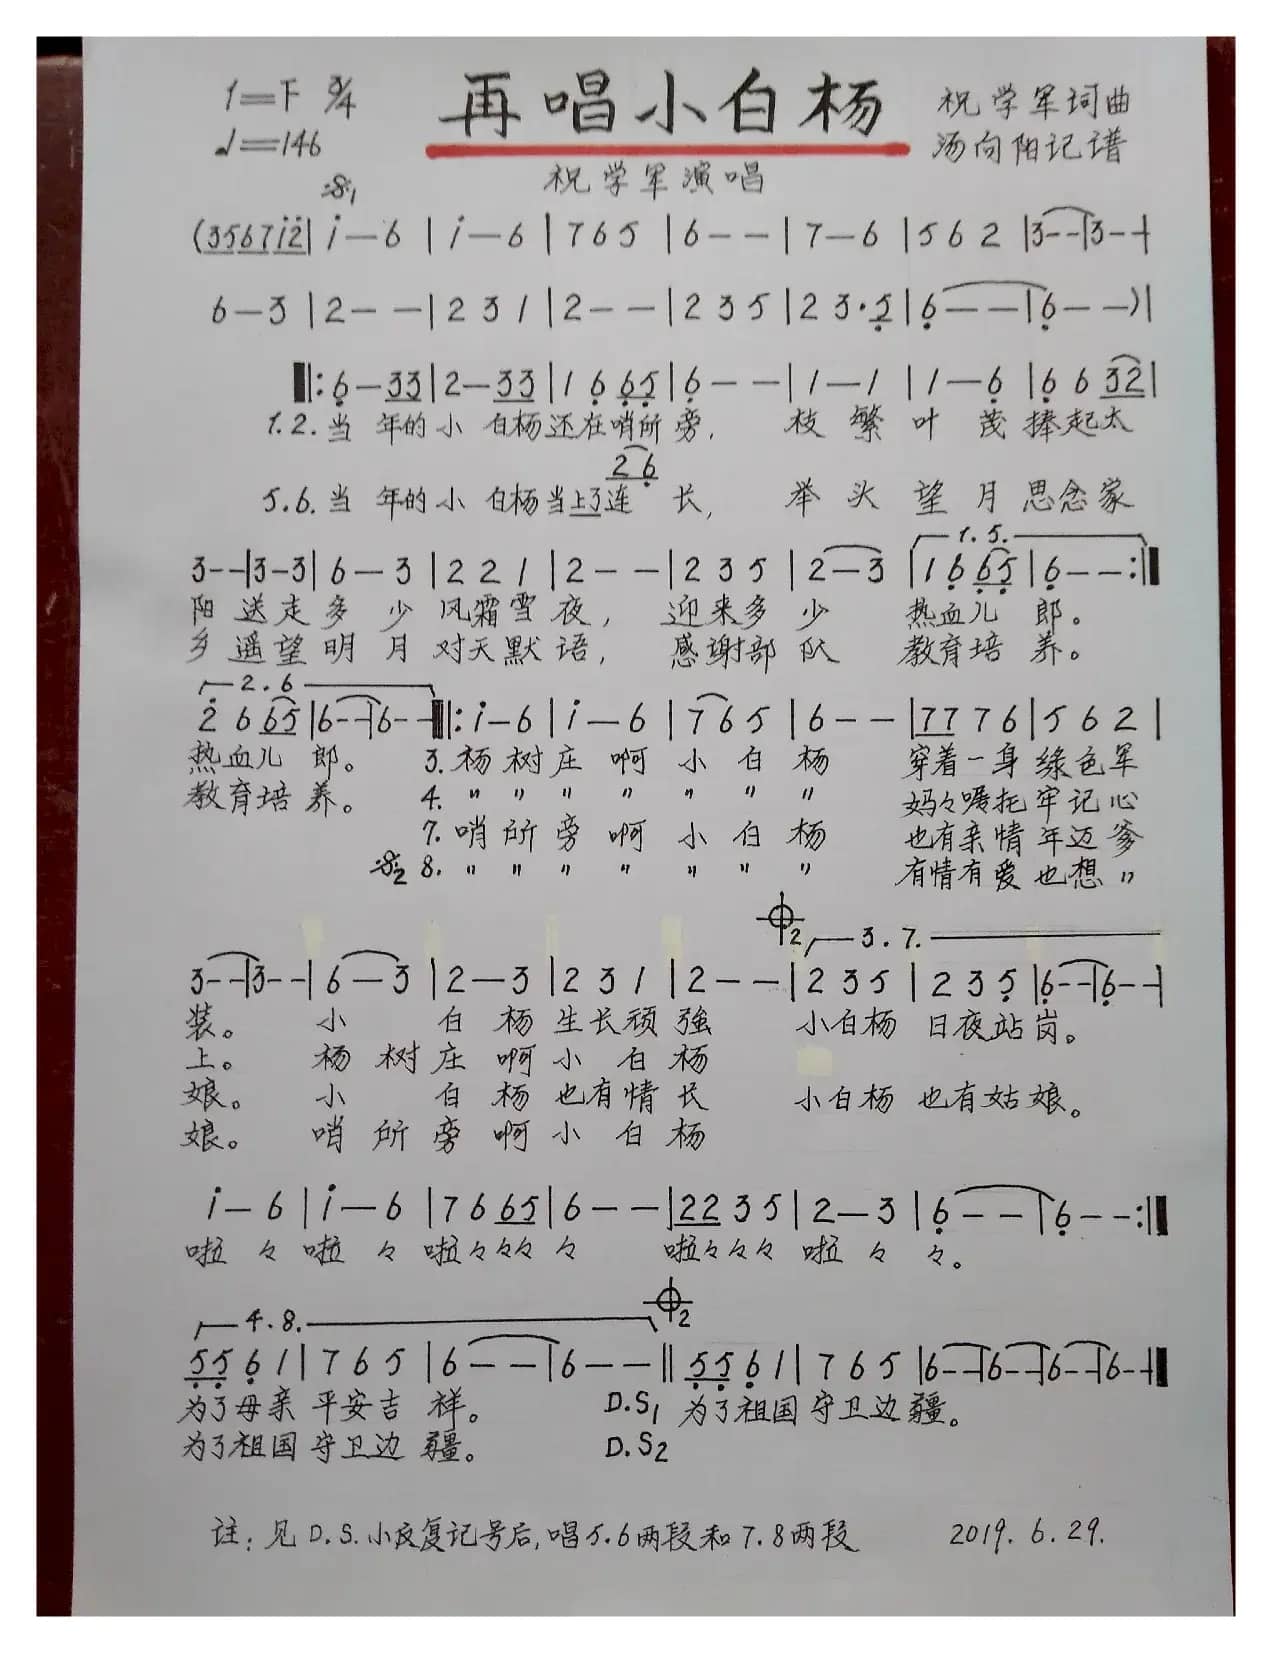 1=F 3/4
再唱小白杨
祝学军词曲
♩=146
汤向阳记谱
祝学军演唱
(356712|i—6|i—6|765|6——|7—6|562|3——|3——|
6—3|2——|231|2——|235|23·5|6——|6——)|
‖:6—33|2—33|1665|6——|1—1|1—6|6632|
1.2.当年的小白杨还在哨所旁,枝繁叶茂捧起太
26
5.6.当年的小白杨当上了连长,举头望月思念家
1.5.
3——|3—3|6—3|221|2——|235|2—3|1665|6——:‖
阳送走多少风霜雪夜,迎来多少热血儿郎。
乡遥望明月对天默语,感谢部队教育培养。
2.6
2665|6——|6——‖:i—6|i—6|765|6——|7776|562|
热血儿郎。3.杨树庄啊小白杨穿着一身绿色军
教育培养。4.〃〃〃〃〃〃〃妈々嘱托牢记心
7.哨所旁啊小白杨也有亲情年迈爹
8.〃〃〃〃〃〃〃有情有爱也想〃
3.7.
3——|3——|6—3|2—3|231|2——|235|235|6——|6——|
装。小白杨生长顽強小白杨日夜站岗。
上。杨树庄啊小白杨
娘。小白杨也有情长小白杨也有姑娘。
娘。哨所旁啊小白杨
i—6|i—6|7665|6——|2235|2—3|6——|6——:‖
啦々啦々啦々々々々啦々々々啦々々。
4.8.
5561|765|6——|6——‖5561|765|6——|6——|6——|6——‖
为了母亲平安吉祥。D.S1为了祖国守卫边疆。
为了祖国守卫边疆。D.S2
註:见D.S.小反复记号后,唱5.6两段和7.8两段 2019.6.29.